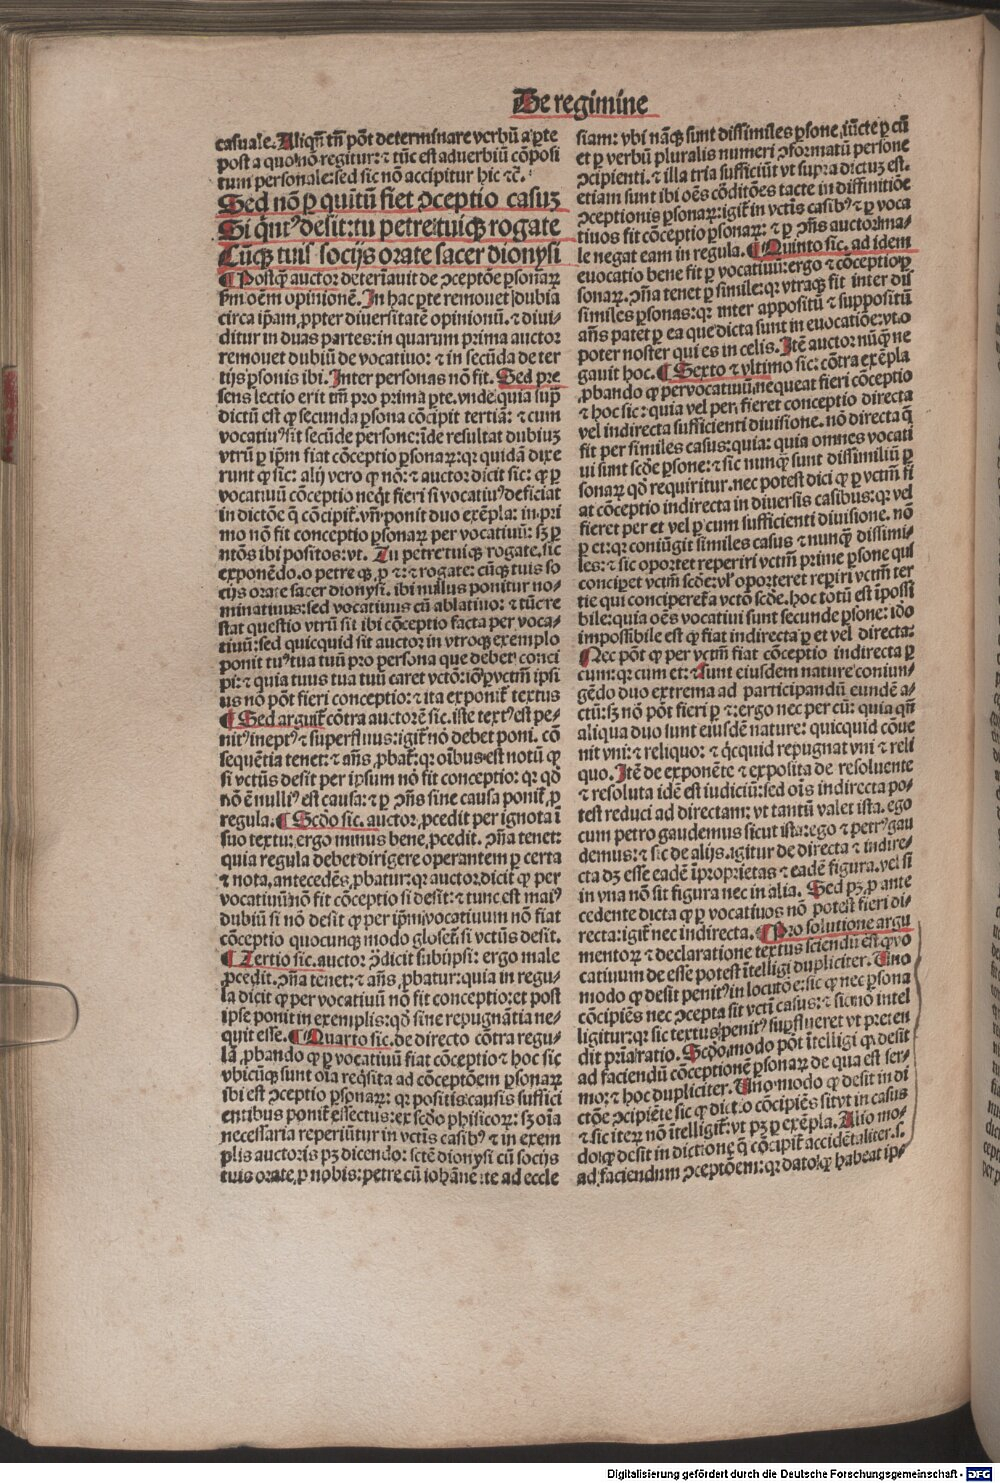 De regimine
casuale. Aliqñ tñ põt determinare verbũ a ꝑte
post a quo nõ regitur: ⁊ tũc est aduerbiũ cõposi
tum personale: sed sic nõ accipitur hic ⁊c̃.
Sed nõ ꝑ quitũ fiet ꝯceptio casuꝫ
Si q̃ntꝰ desit: tu petre tuiqꝫ rogate
Cũqꝫ tuis socijs orate sacer dionysi
¶ Postq̃ᷓ auctor deteriauit de ꝯceptõe ꝑsonaꝝ
ẜm oẽm opinionẽ. In hac ꝑte remouet dubia
circa ipam, ꝓpter diuersitatẽ opinionũ. ⁊ diui-
ditur in duas partes: in quarum prima auctor
remouet dubiũ de vocatiuo: ⁊ in secũda de ter
tijs ꝑsonis ibi. Inter personas nõ fit. Sed pre
sens lectio erit tm̃ pro prima ꝑte. vnde quia sup̃
dictũ est ꝙ secunda ꝑsona cõcipit tertiã: ⁊ cum
vocatiuꝰ sit secũde persone: ĩde resultat dubiuꝫ
vtrũ ꝑ ip̃m fiat cõceptio ꝑsonaꝝ: qꝛ quidã dixe
runt ꝙ sic: alij vero ꝙ nõ: ⁊ auctor dicit sic: ꝙ ꝑ
vocatiuũ cõceptio neq̃t fieri si vocatiuꝰ deficiat
in dictõe q̃ cõcipit̃. vñ ponit duo exẽpla: in pri
mo nõ fit conceptio ꝑsonaꝝ per vocatiuũ: sꝫ ꝑ
ntõs ibi positos: vt. Tu petre tuiqꝫ rogate, sic
exponẽdo. o petre qꝫ ꝓ ⁊: ⁊ rogate: cũqꝫ tuis so
cijs orate sacer dionysi. ibi nullus ponitur no-
minatiuus: sed vocatiuus cũ ablatiuo: ⁊ tũc re
stat questio vtrũ sit ibi cõceptio facta per voca-
tiuũ: sed quicquid sit auctor in vtroqꝫ exemplo
ponit tuꝰ tua tuũ pro persona que debet conci
pi: ⁊ quia tuus tua tuũ caret vctõ: iõ ꝑ vctm̃ ipsi
us nõ põt fieri conceptio: ⁊ ita exponit̃ textus
¶ Sed arguit̃ cõtra auctorẽ sic. iste textꝰ est pe-
nitꝰ ineptꝰ ⁊ superfluus: igit̃ nõ debet poni. cõ
sequẽtia tenet: ⁊ añs ꝓbat̃: qꝛ oĩbus est notũ ꝙ
si vctũs desit per ipsum nõ fit conceptio: qꝛ qõ
nõ ẽ nulliꝰ est causa: ⁊ ꝑ ꝯñs sine causa ponit̃ ꝓ
regula. ¶ Scd̃o sic. auctor ꝓcedit per ignota ĩ
suo textu: ergo minus bene ꝓcedit. ꝯña tenet:
quia regula debet dirigere operantem ꝑ certa
⁊ nota, antecedẽs ꝓbatur: qꝛ auctor dicit ꝙ per
vocatiuũ nõ fit cõceptio si desit: ⁊ tunc est maiꝰ
dubiũ si nõ desit ꝙ per ip̃m vocatiuum nõ fiat
cõceptio quocunqꝫ modo gloset̃ si vctũs desit.
¶ Tertio sic. auctor ꝯdicit subiipsi: ergo male
ꝓcedit. ꝯña tenet: ⁊ añs ꝓbatur: quia in regu-
la dicit ꝙ per vocatiuũ nõ fit conceptio: et post
ipse ponit in exemplis: qõ sine repugnãtia ne-
quit esse. ¶ Quarto sic. de directo cõtra regu-
lã ꝓbando ꝙ ꝑ vocatiuũ fiat cõceptio ⁊ hoc sic
vbicũqꝫ sunt oĩa req̃sita ad cõceptõem ꝑsonaꝝ
ibi est ꝯceptio ꝑsonaꝝ: qꝛ positis causis suffici
entibus ponit̃ effectus: ex scd̃o phisicoꝝ: sꝫ oĩa
necessaria reperiũtur in vctis casibꝰ ⁊ in exem
plis auctoris pꝫ dicendo: sctẽ dionysi cũ socijs
tuis orate, ꝓ nobis: petre cũ iohãne ite ad eccle
siam: vbi nãqꝫ sunt dissimiles ꝑsone, iũcte ꝑ cũ
et ꝑ verbũ pluralis numeri ꝯformatũ persone
ꝯcipienti. ⁊ illa tria sufficiũt vt supra dictuꝫ est.
etiam sunt ibi oẽs cõditões tacte in diffinitiõe
ꝯceptionis ꝑsonaꝝ: igit̃ in vctis casibꝰ ⁊ ꝑ voca
tiuos fit cõceptio ꝑsonaꝝ: ⁊ ꝑ ꝯñs auctor ma-
le negat eam in regula. ¶ Quinto sic. ad idem
euocatio bene fit ꝑ vocatiuũ: ergo ⁊ cõceptio ꝑ
sonaꝝ. ꝯña tenet ꝑ simile: qꝛ vtraqꝫ fit inter dis
similes ꝑsonas: qꝛ inter appositũ ⁊ suppositũ
añs patet ꝑ ea que dicta sunt in euocatiõe: vt. o
pater noster qui es in celis. Itẽ auctor nũqꝫ ne
gauit hoc. ¶ Sexto ⁊ vltimo sic: cõtra exẽpla
ꝓbando ꝙ per vocatiuũ nequeat fieri cõceptio
⁊ hoc sic: quia vel per, fieret conceptio directa
vel indirecta sufficienti diuisione. nõ directa q̃
fit per similes casus: quia: quia omnes vocati
ui sunt scd̃e ꝑsone: ⁊ sic nunqꝫ sunt dissimiliũ ꝑ
sonaꝝ qõ requiritur. nec potest dici ꝙ ꝑ vctm̃ fi
at cõceptio indirecta in diuersis casibus: qꝛ vel
fieret per et vel ꝑ cum sufficienti diuisione. nõ
ꝑ et: qꝛ coniũgit similes casus ⁊ nunqꝫ dissimi-
les: ⁊ sic oportet reperiri vctm̃ prime ꝑsone qui
conciperet vctm̃ scd̃e: vl̃ oporteret reꝑiri vctm̃ ter
tie qui conciperet̃ a vctõ scd̃e. hoc totũ est ĩpossi
bile: quia oẽs vocatiui sunt secunde ꝑsone: idõ
impossibile est ꝙ fiat indirecta ꝑ et vel directa:
Nec põt ꝙ per vctm̃ fiat cõceptio indirecta ꝑ
cum: qꝛ cum et: ⁊ sunt eiusdem nature coniun-
gẽdo duo extrema ad participandũ eundẽ a-
ctũ: sꝫ nõ põt fieri ꝑ ⁊: ergo nec per cũ: quia qñ
aliqua duo sunt eiusdẽ nature: quicquid cõue
nit vni: ⁊ reliquo: ⁊ q̃cquid repugnat vni ⁊ reli
quo. Itẽ de exponẽte ⁊ exposita de resoluente
⁊ resoluta idẽ est iudiciũ: sed oĩs indirecta po-
test reduci ad directam: vt tantũ valet ista. ego
cum petro gaudemus sicut ista: ego ⁊ petrꝰ gau
demus: ⁊ sic de alijs. igitur de directa ⁊ indire-
cta dꝫ esse eadẽ ĩproprietas ⁊ eadẽ figura. vel si
in vna nõ sit figura nec in alia. Sed pꝫ ꝓ ante
cedente dicta ꝙ ꝑ vocatiuos nõ potest fieri di-
recta: igit̃ nec indirecta. ¶ Pro solutione argu
mentoꝝ ⁊ declaratione textus sciendũ est ꝙ vo
catiuum de esse potest ĩtelligi dupliciter. Uno
modo ꝙ desit penitꝰ in locutõe: sic ꝙ nec ꝑsona
cõcipiẽs nec ꝯcepta sit vcti casus: ⁊ sic nõ intel
ligitur: qꝛ sic textus penitꝰ sup̃flueret vt preten
dit prĩa ratio. Scd̃o modo põt ĩtelligi ꝙ desit
ad faciendũ cõceptionẽ ꝑsonaꝝ de qua est ser-
mo: ⁊ hoc dupliciter. Uno modo ꝙ desit in di
ctõe ꝯcipiẽte sic ꝙ dictio cõcipiẽs sit vt in casus
⁊ sic iteꝝ nõ ĩtelligit̃: vt pꝫ ꝑ exẽpla. Alio mo-
do ꝙ desit in dictione q̃ cõcipit̃ accidẽtaliter. s.
ad faciendum ꝯceptõem: qꝛ dato ꝙ habeat ip-
Digitalisierung gefördert durch die Deutsche Forschungsgemeinschaft - DFG